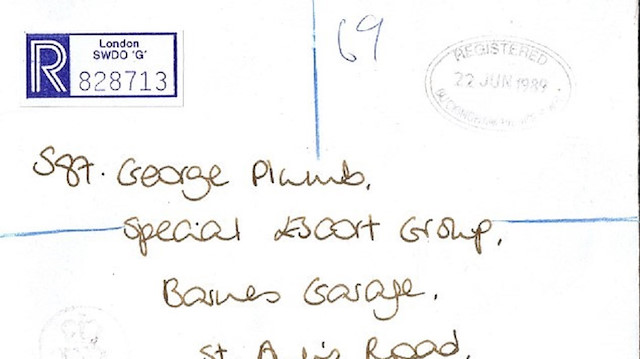 London
SWDO 'G'
R
828713
69
REGISTERED
22 JUN 1989
Sgt. George Plumb,
Special Escort Group,
Barnes Garage,
St Road,